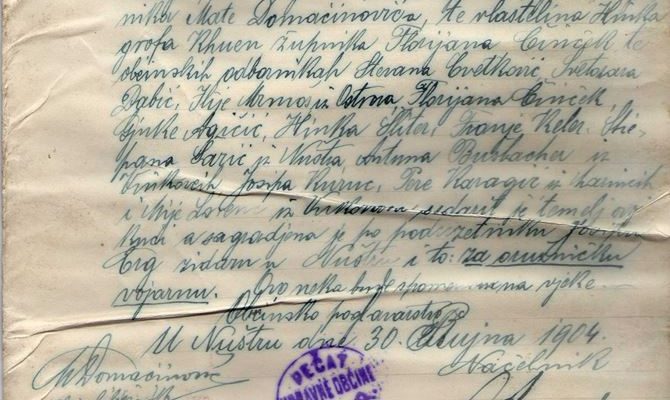 nika Mate Domaćinovića, te vlastelina Hinka
grofa Khuen župnika Florijana Činček te
obćinskih odbornikah Stevana Cvetković, Svetozara
Dabić, Ilije Mrmoš iz Ostrova Florijana Činček,
Gjuke Agičić, Hinka Hiter, Franje Keler, Stje-
pana Sarić iz Nuštra Antuna Burbacher iz
Josipa Kuruc, Pere Karagić iz
i Ilije iz je temelj ovoj
kući a sagradjena je po poduzetniku Josipu
Erg zidaru u Nuštru i to: za oružničku
vojarnu. Ovo neka bude na vjeke.
Obćinsko poglavarstvo
U Nuštru dne 30. Rujna 1904.
Načelnik
Domaćinović
PEČAT
UPRAVNE OBĆINE